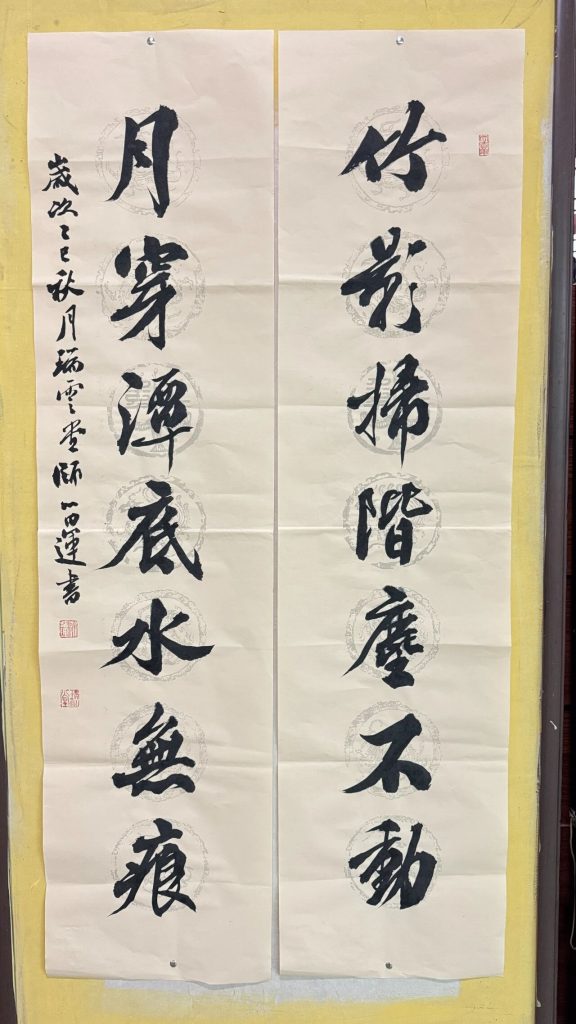 竹影掃階塵不動
月穿潭底水無痕
歲次乙巳秋月瑞雲堂師笛運書